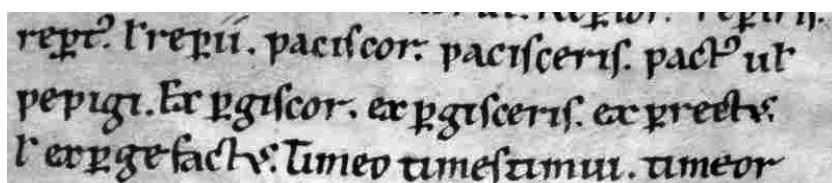 reꝑtꝰ. ł reꝑii. paciſcor. paciſceris. pactꝰ uł
pepigi. Exꝑgiſcor. exꝑgiſceriſ. exꝑrectuſ.
ł exꝑgefactuſ. Timeo timeſ timui. timeor